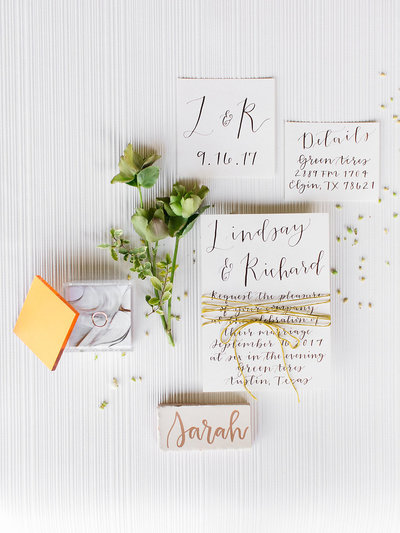 L & R
9.16.17
Details
Green Acres
2389 FM 1704
Elgin, TX 78621
Lindsay
& Richard
Request the pleasure
of your company
at the celebration of
their marriage
September 16 2017
at six in the evening
Green Acres
Austin, Texas
Sarah